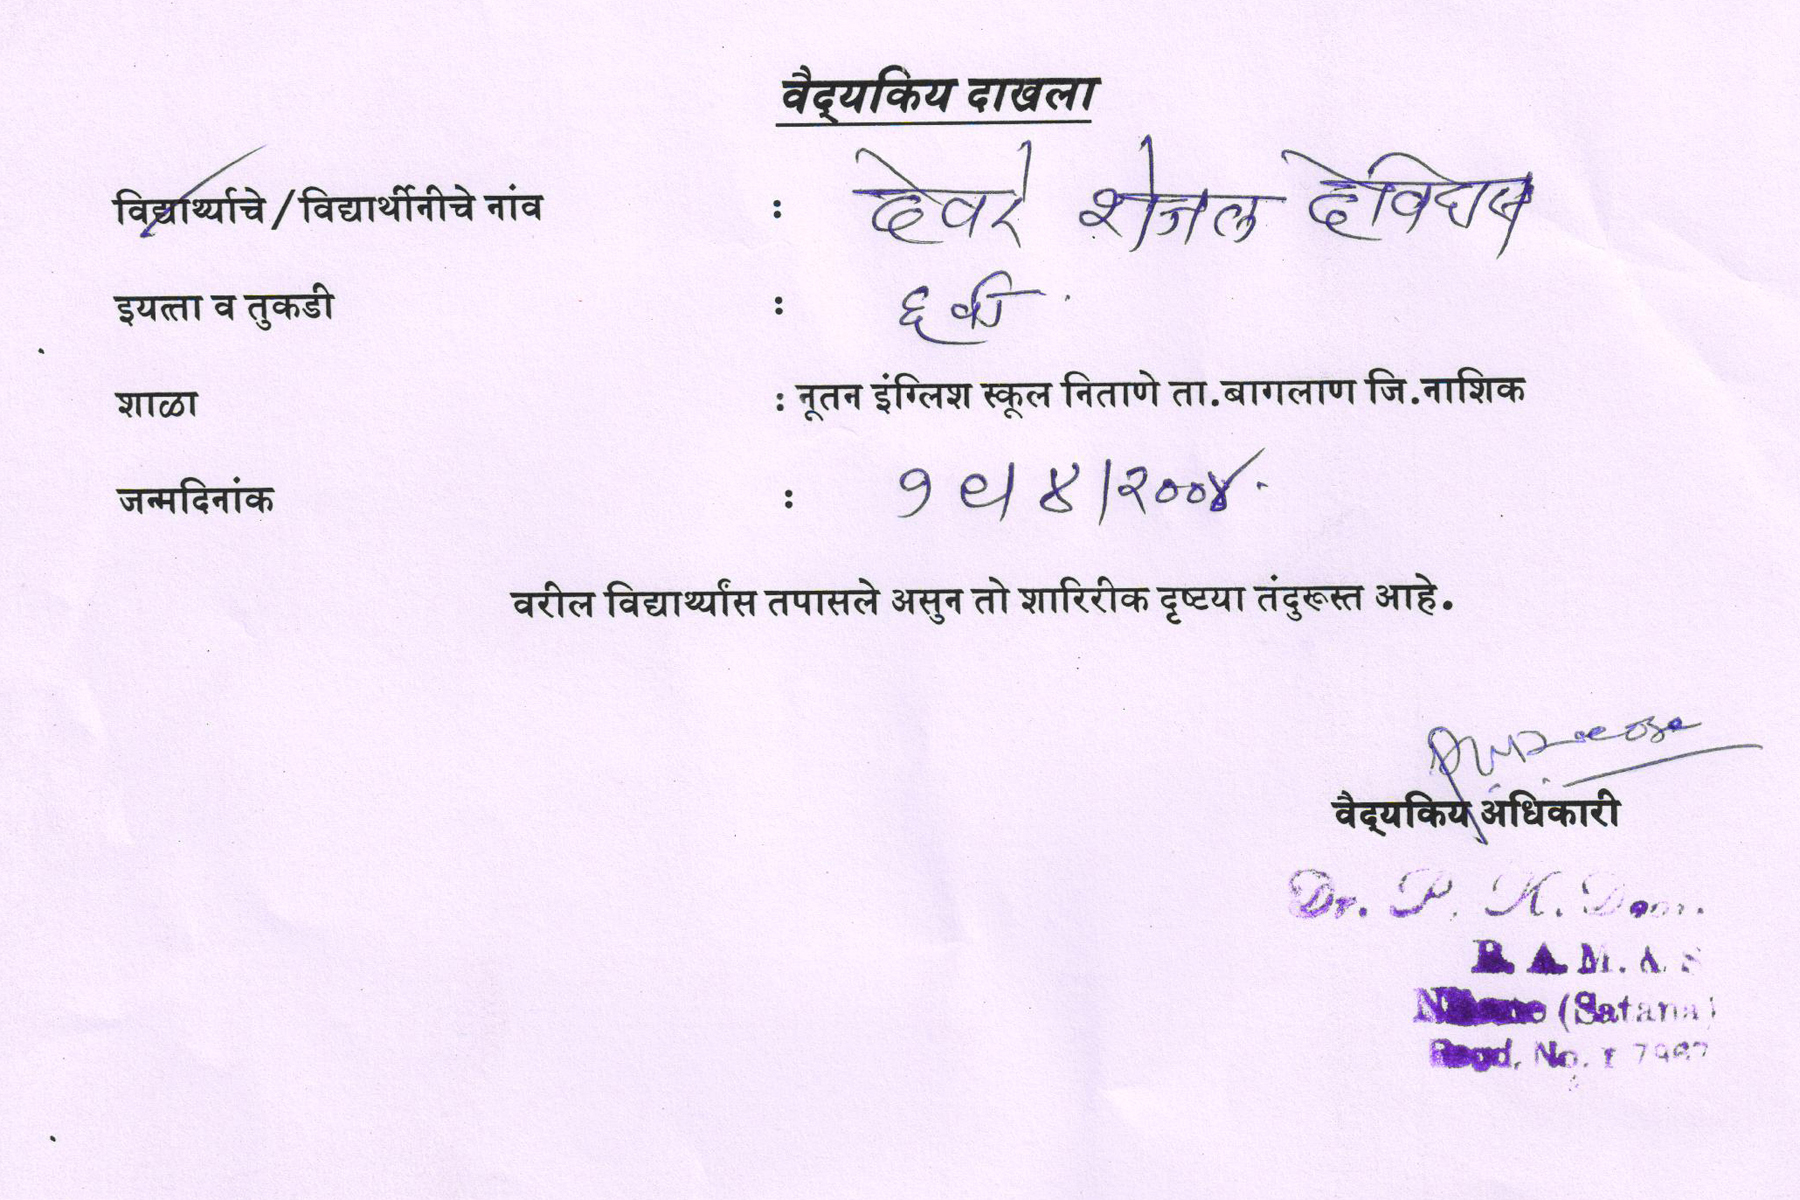 वैद्यकिय दाखला
विद्यार्थ्याचे / विद्यार्थीनीचे नांव : देवरे शेजल देविदास
इयत्ता व तुकडी : ६ वी.
शाळा : नूतन इंग्लिश स्कूल निताणे ता.बागलाण जि.नाशिक
जन्मदिनांक : १९/४/२००४.
वरील विद्यार्थ्यांस तपासले असुन तो शारिरीक दृष्टया तंदुरूस्त आहे.
वैद्यकिय अधिकारी
Dr. P. K.
B. A. M. & S
(Satana)
Regd. No. I